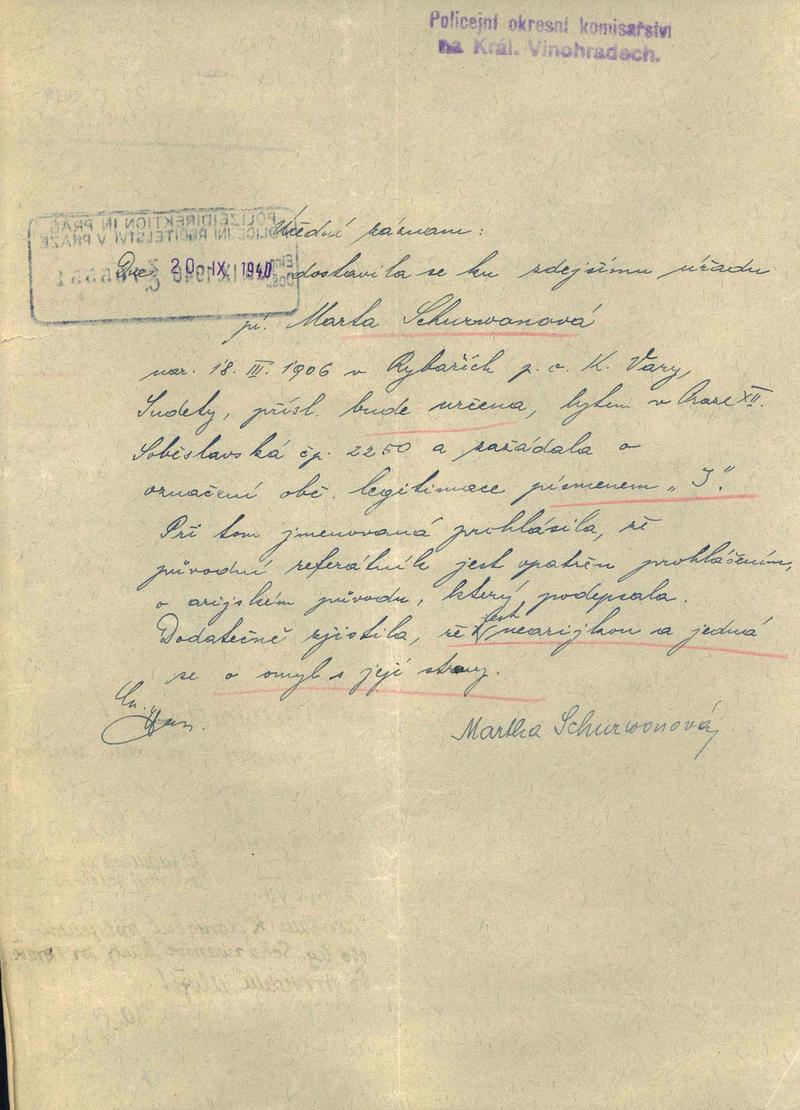 Policejní okresní komisařství
na Král. Vinohradech.
POLIZEIDIREKTION IN PRAG
POLICEJNÍ ŘEDITELSTVÍ V PRAZE
Úřední záznam:
Dne 20. IX. 1940 dostavila se ku zdejšímu úřadu
pí. Marta Schurwonová
nar. 18. III. 1906 v Rybařích p. o. K. Vary,
Sudety, přísl. bude určena, bytem v Praze XII.
Soběslavská čp. 2250 a zažádala o
označení obč. legitimace písmenem „J“.
Při tom jmenovaná prohlásila, že
původní referátník jest opatřen prohlášením,
o arijském původu, který podepsala.
Dodatečně zjistila, že jest nearijkou a jedná
se o omyl s její strany.
Martha Schurwonová